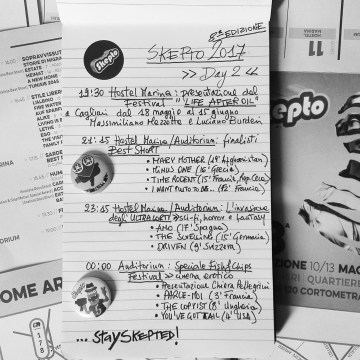 8ª EDIZIONE
skepto
SKEPTO 2017
>> Day 2 <<
19:30 Hostel Marina: presentazione del
Festival "LIFE AFTER OIL"
a Cagliari dal 18 maggio al 15 giugno
Massimiliano Mazzotta e Luciano Burderi
21:15 Hostel Marina/Auditorium: finalisti
BEST SHORT
• MARY MOTHER (19' Afghanistan)
• MINUS ONE (15' Grecia)
• TIME RODENT (15' Francia, Rep. Ceca)
• I WANT PLUTO TO BE (12' Francia)
23:15 Hostel Marina/Auditorium: L'invasione
degli ULTRACORTI >> sci-fi, horror e fantasy
• AMO (17' Spagna)
• THE SWELLING (15' Germania)
• DRIVEN (9' Svizzera)
00:00 Auditorium: Speciale Fish&Chips
Festival >> cinema erotico
• Presentazione Chiara Pellegrini
• PARLE-MOI (3' Francia)
• THE COPYIST (8' Ungheria)
• YOU'VE GOT TAIL (4' USA)
... STAY SKEPTED!
SOPRAVVISSUT
ESTATE
NEMAT
A NEW HOME
TUNISIE 2045
STYLE LIBER
FIRE
AUE
LIVING
LET
11
pto
10/13 MA
MARI | QUARTIERE
120 CORTOMETRA
OME AR